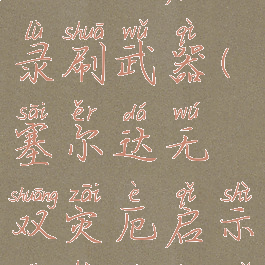 lù shuā wǔ qì
录刷武器(
sāi ěr dá wú
塞尔达无
shuāng zāi è qǐ shì
双灾厄启示